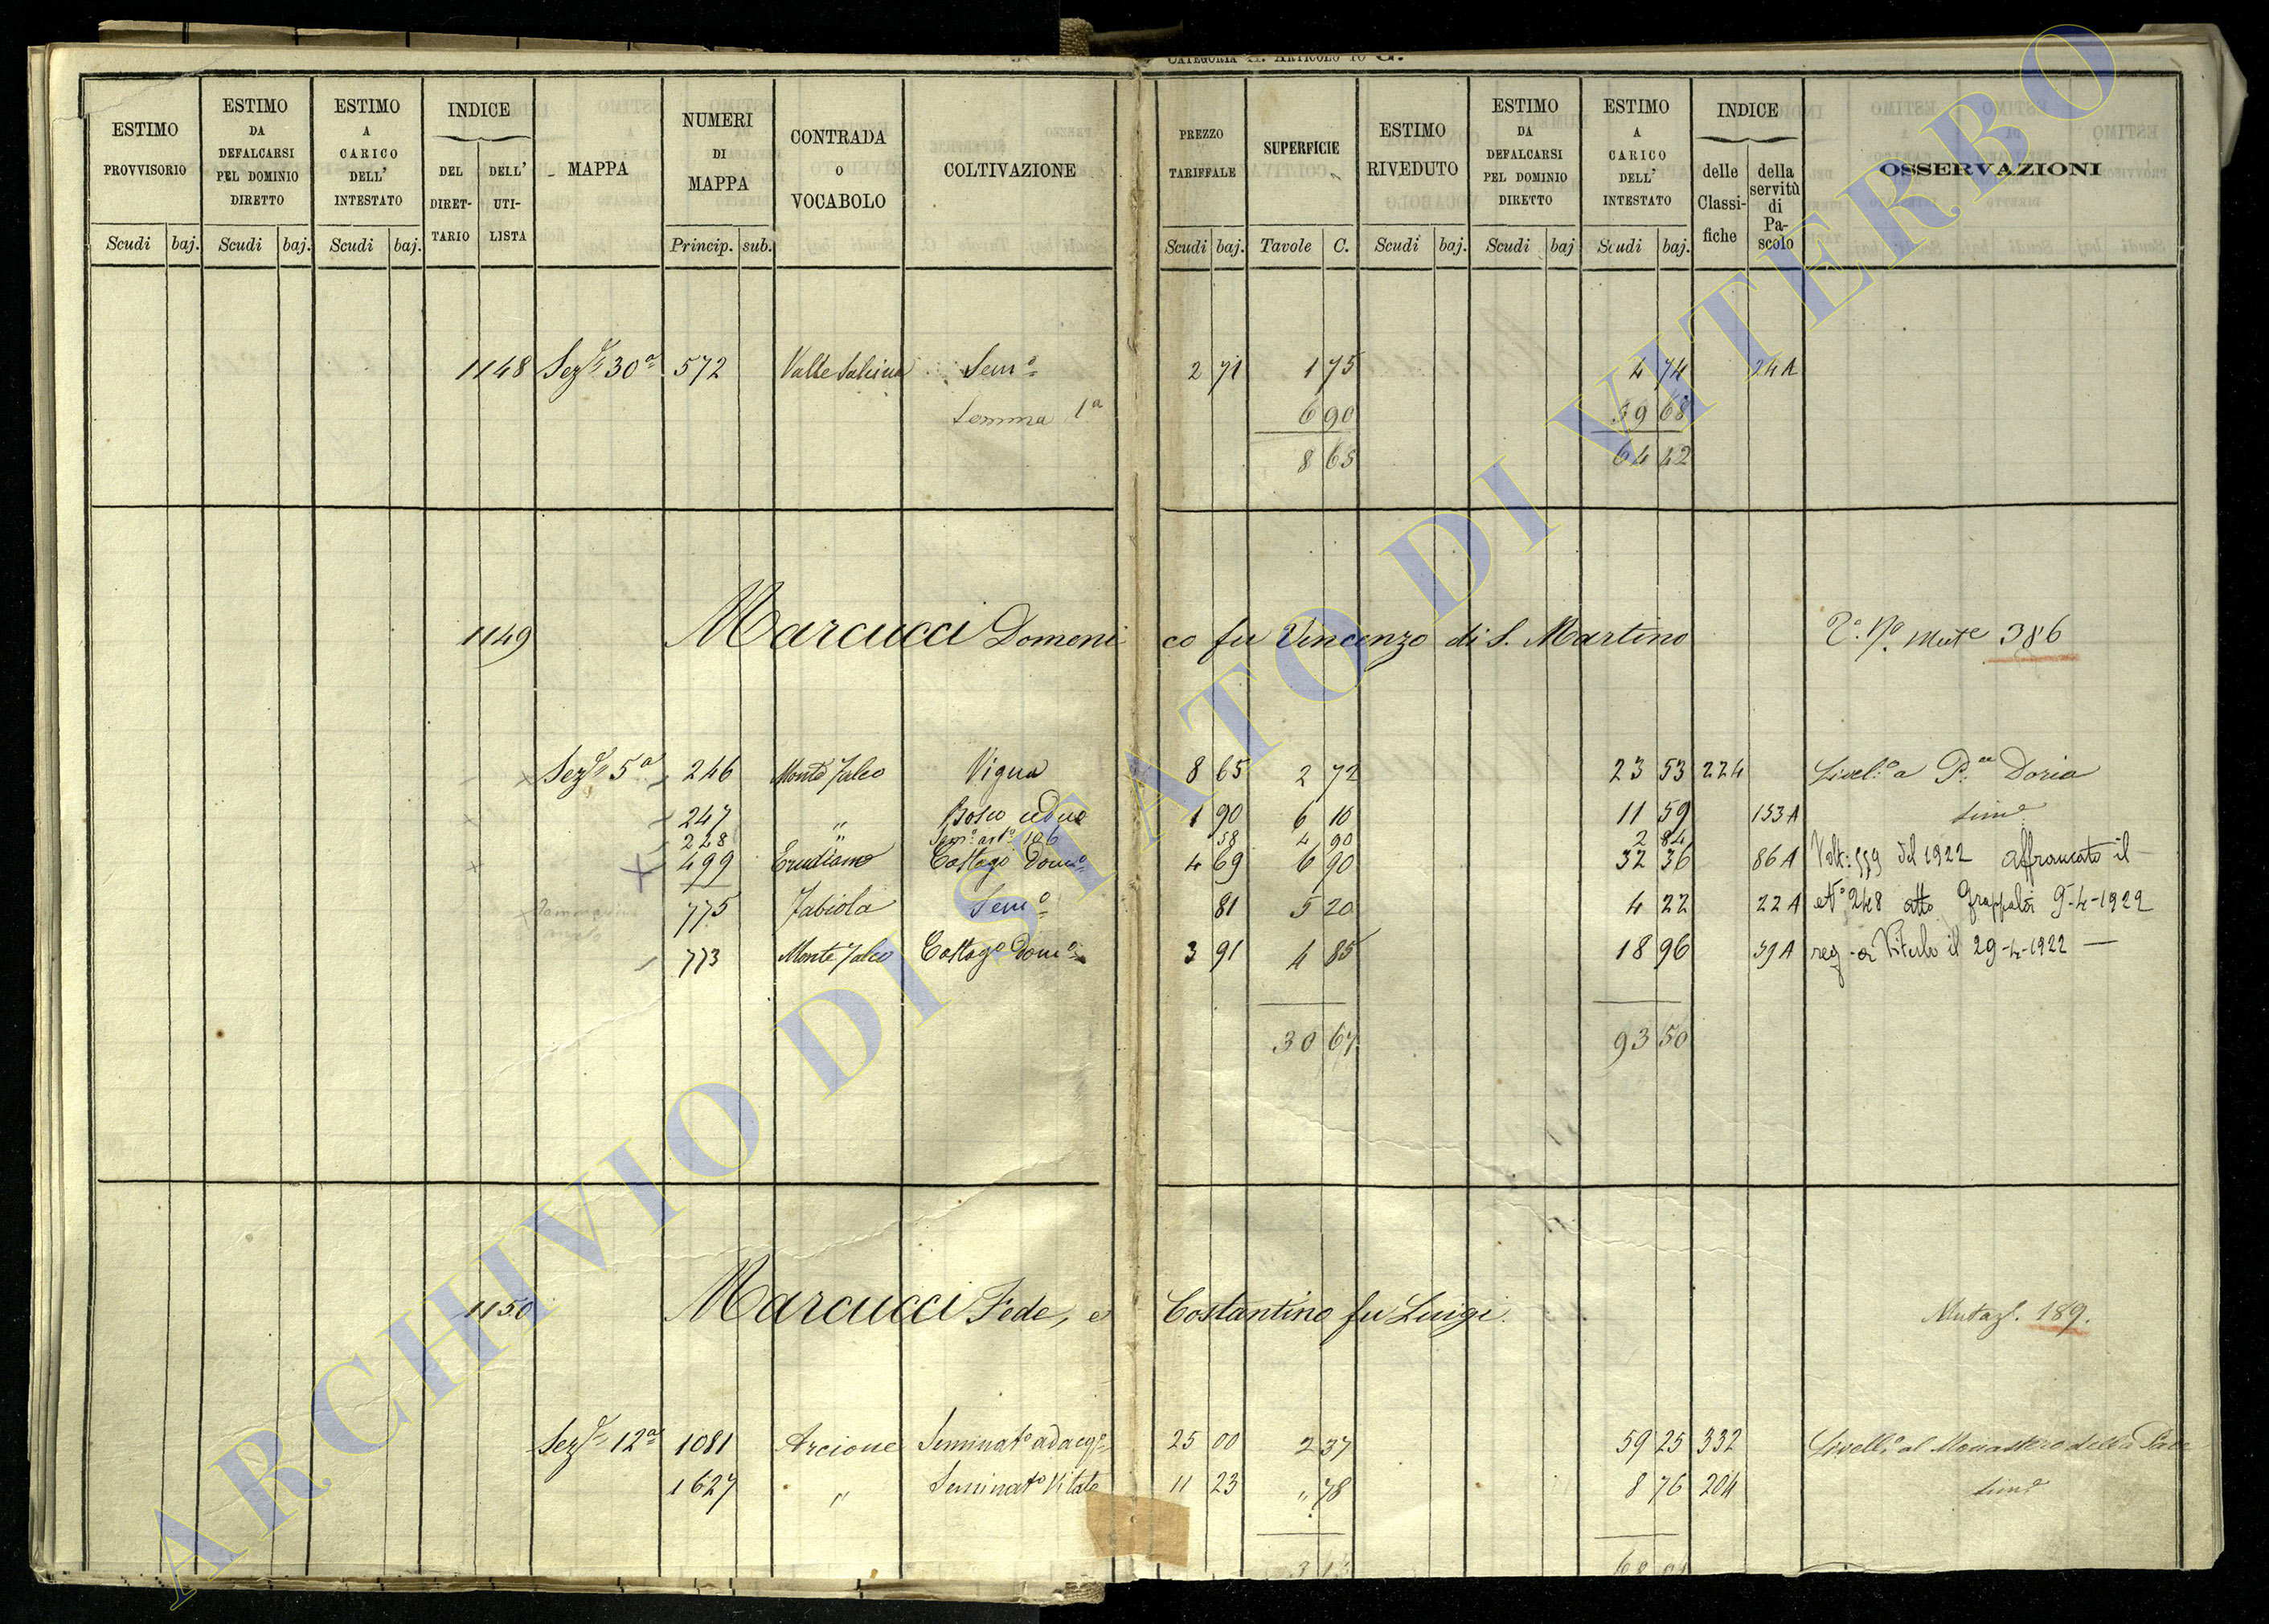 CATEGORIA II. ARTICOLO 10 G.
ESTIMO PROVVISORIO Scudi baj.
ESTIMO DA DEFALCARSI PEL DOMINIO DIRETTO Scudi baj.
ESTIMO A CARICO DELL' INTESTATO Scudi baj.
INDICE DEL DIRETTARIO DELL' UTILISTA
MAPPA
NUMERI DI MAPPA Princip. sub.
CONTRADA o VOCABOLO
COLTIVAZIONE
PREZZO TARIFFALE Scudi baj.
SUPERFICIE Tavole C.
ESTIMO RIVEDUTO Scudi baj.
ESTIMO DA DEFALCARSI PEL DOMINIO DIRETTO Scudi baj
ESTIMO A CARICO DELL' INTESTATO Scudi baj.
INDICE delle Classifiche della servitù di Pascolo
OSSERVAZIONI
1148 Sez.e 30a 572 Valle Semo 2 71 1 75 4 74 24A
Somma 1a 6 90 59 68
8 65 64 42
1149 Marcucci Domenico fu Vincenzo di S. Martino Mut.e 386
Sez.e 5a 246 Monte Falco Vigna 8 65 2 72 23 53 224 Livel.o a P. Doria
247 " Bosco ceduo 1 90 6 10 11 59 153A Sim.e
228 " Semo art.o 106 58 4 90 2 84
499 Castag.o Dom.o 4 69 6 90 32 36 86A Volt: 559 del 1922 affrancato il
775 Fabiola Semo 81 5 20 4 22 22A No 248 atto 9-4-1922
773 Monte Falco Castag.o Dom.o 3 91 4 85 18 96 59A reg. a Viterbo il 29-4-1922 —
30 67 93 50
1150 Marcucci Fede, e Costantino fu Luigi. Mutaz. 189.
Sez.e 12a 1081 Arcione Seminato adacq.o 25 00 2 37 59 25 332 Livell.o al Monastero della Pace
1627 " Seminato Vitato 11 23 " 78 8 76 204 Sim.e
3 15 68 01
ARCHIVIO DI STATO DI VITERBO